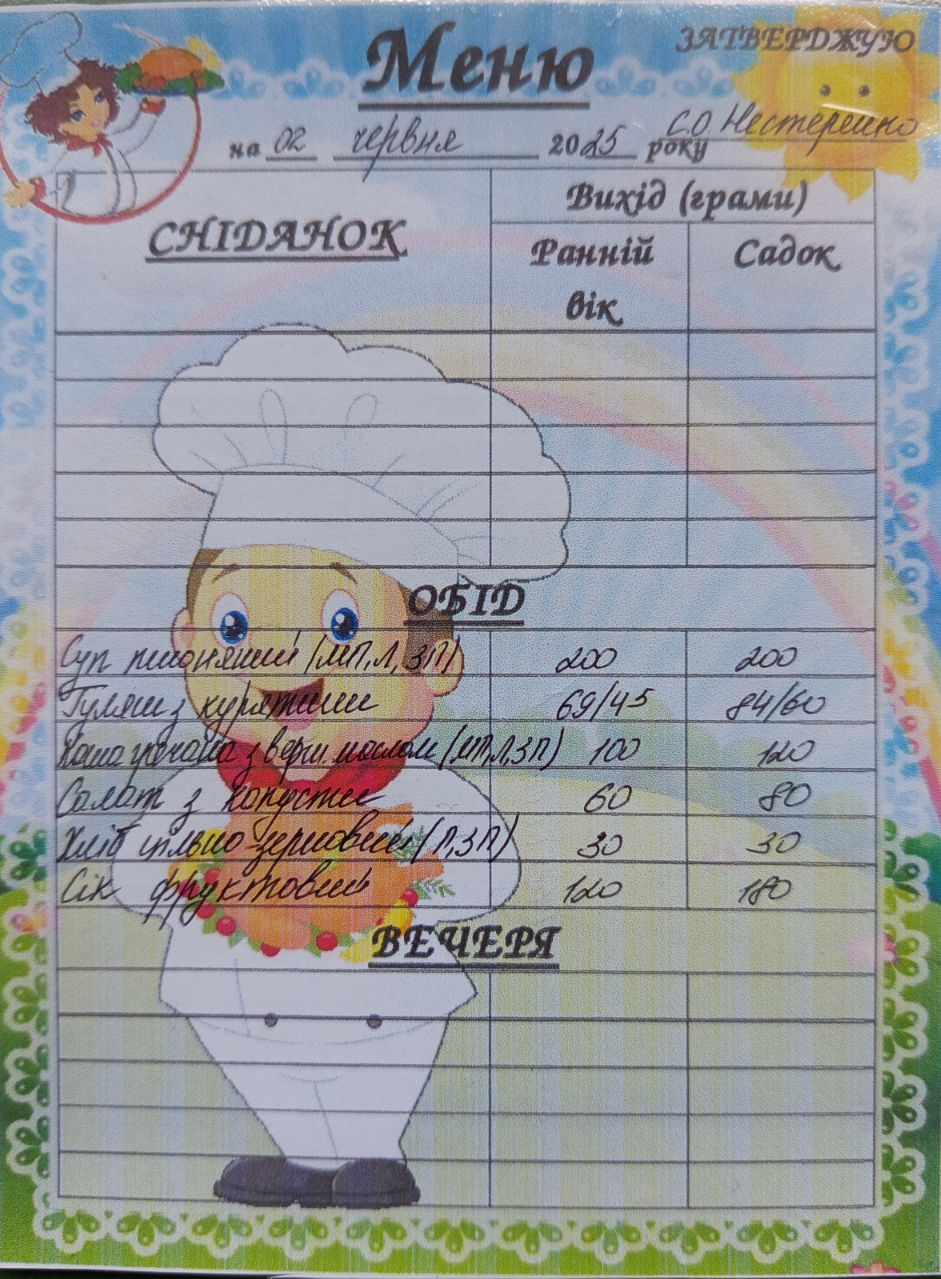 ЗАТВЕРДЖУЮ
Меню
С.О Нестеренко
на 02 червня 2025 року
СНІДАНОК
Вихід (грами)
Ранній вік
Садок
ОБІД
Суп пшоняний (МП, Л, ЗП) 200 200
Гуляш з курятини 69/45 84/60
Каша гречана з верш. маслом (МП, Л, ЗП) 100 120
Салат з капусти 60 80
Хліб цільно-зерновий (Л, ЗП) 30 30
Сік фруктовий 120 180
ВЕЧЕРЯ